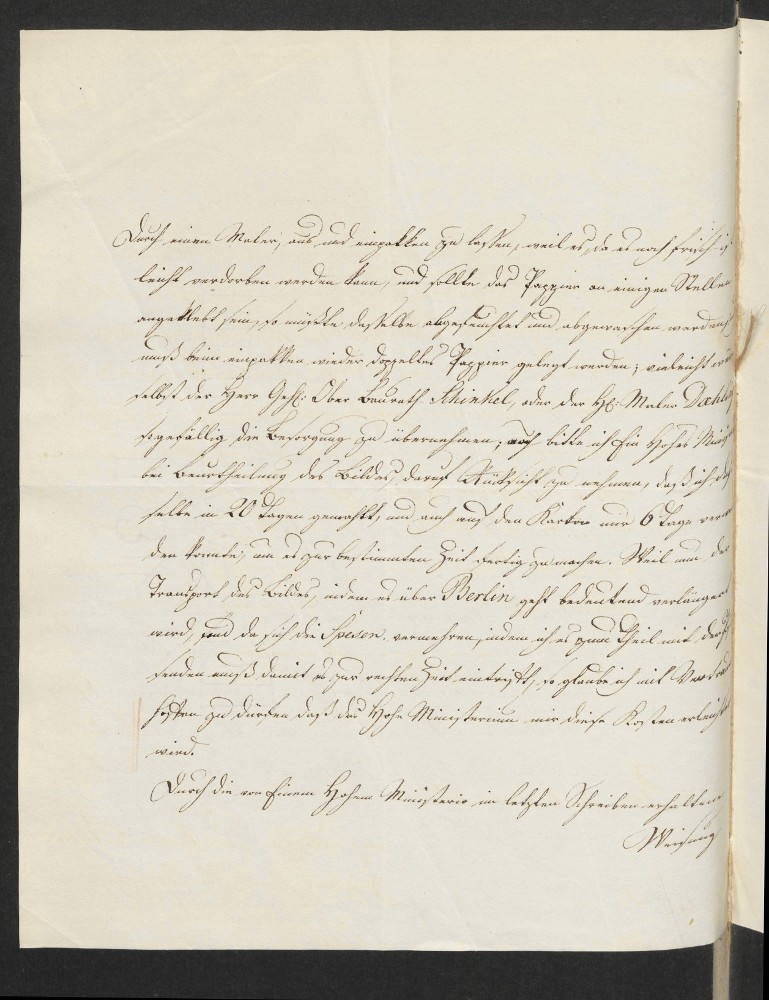 Durch einen Maler, aus und einpakken zu lassen, weil es, da es noch frisch ist
leicht verdorben werden kann, und sollte das Pappier an einigen Stellen
angeklebt sein, so müsste dasselbe abgefeuchtet und abgewaschen werden
muß beim einpakken wieder doppeltes Pappier gelegt werden; vieleicht
selbst der Herr Geh: Ober Baurath Schinkel, oder der H: Maler Daehling
so gefällig die Besorgung zu übernehmen; auch bitte ich Ein Hohes
bei Beurtheilung des Bildes, darauf Rücksicht zu nehmen, daß ich
selbe in 20 Tagen gemahlt, und auch auf den Karton nur 6 Tage
den konnte, um es zur bestimmten Zeit fertig zu machen. Weil nun der
Transport des Bildes, indem es über Berlin geht bedeutend verlängert
wird, und da sich die Spesen vermehren, indem ich es zum Theil mit der
senden muß damit es zur rechten Zeit eintrifft, so glaube ich mit
hoffen zu dürfen daß das Hohe Ministerium mir diese Kosten
wird.
Durch die von Einem Hohem Ministerio im letzten Schreiben erhaltene
Weisung